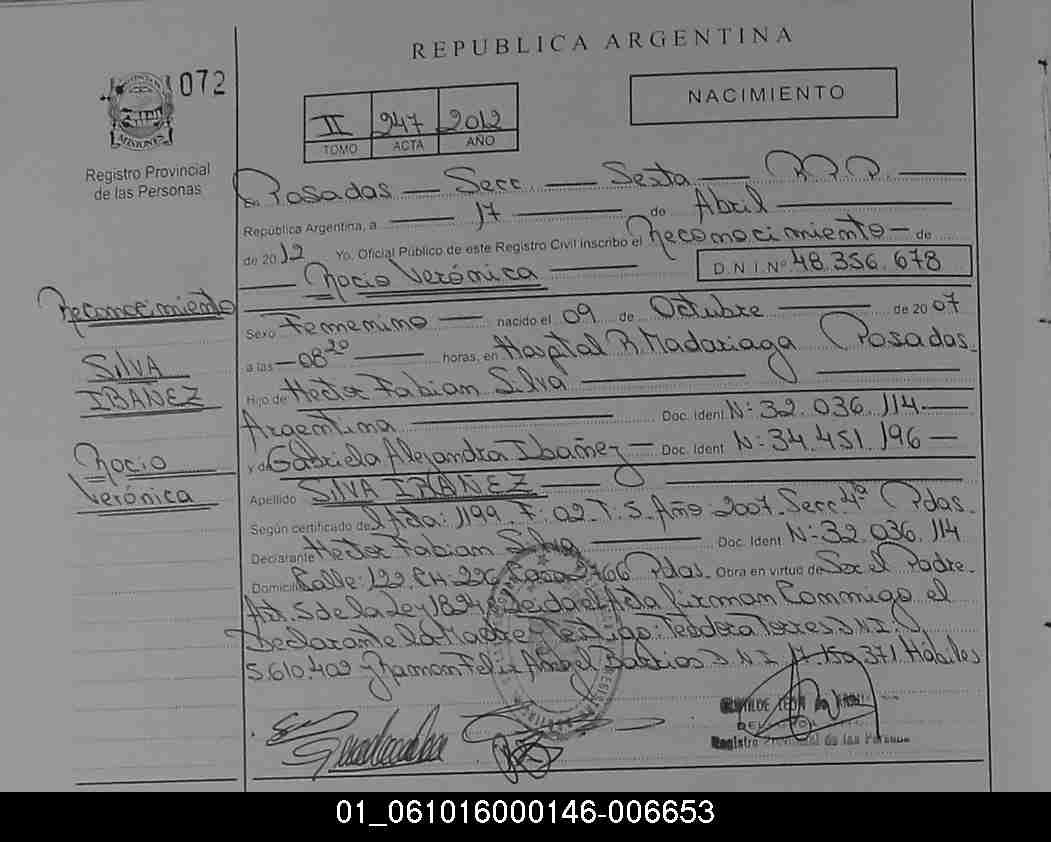 REPUBLICA ARGENTINA
1072
NACIMIENTO
II 247 2012
TOMO ACTA AÑO
MISIONES
Registro Provincial
de las Personas
Posadas — Secc. — Sexta — R.P.P. —
República Argentina, a — 17 — de Abril —
de 2012 Yo. Oficial Público de este Registro Civil inscribo el Reconocimiento — de
— Rocio Verónica — D.N.I. Nº 48.356.678
Reconocimiento
SILVA
IBAÑEZ
Rocio
Verónica
Sexo Femenino — nacido el 09 de Octubre — de 2007
a las — 08²⁰ — horas, en Hospital R. Madariaga Posadas.
Hijo de Hector Fabian Silva —
Argentina — Doc. Ident N: 32.036.114 —
y de Gabriela Alejandra Ibañez — Doc. Ident N: 34.451.196 —
Apellido SILVA IBAÑEZ —
Según certificado de Acta: 1199. F: 02. T. 5. Año: 2007. Secc. 4ª Pdas.
Declarante Hector Fabian Silva — Doc. Ident N: 32.036.114
Domicilio Calle: 122. CH. 226. Casa 2766 Pdas. Obra en virtud de Ser el Padre.
Art. 5 de la Ley Leida el Acta firman Conmigo el
Declarante la Madre y Testigo: Teodora Torres D.N.I.
5.610.402 y Ramon Felix Angel Barrios D.N.I. 17.159.371. Habiles
Registro Provincial de las Personas
01_061016000146-006653